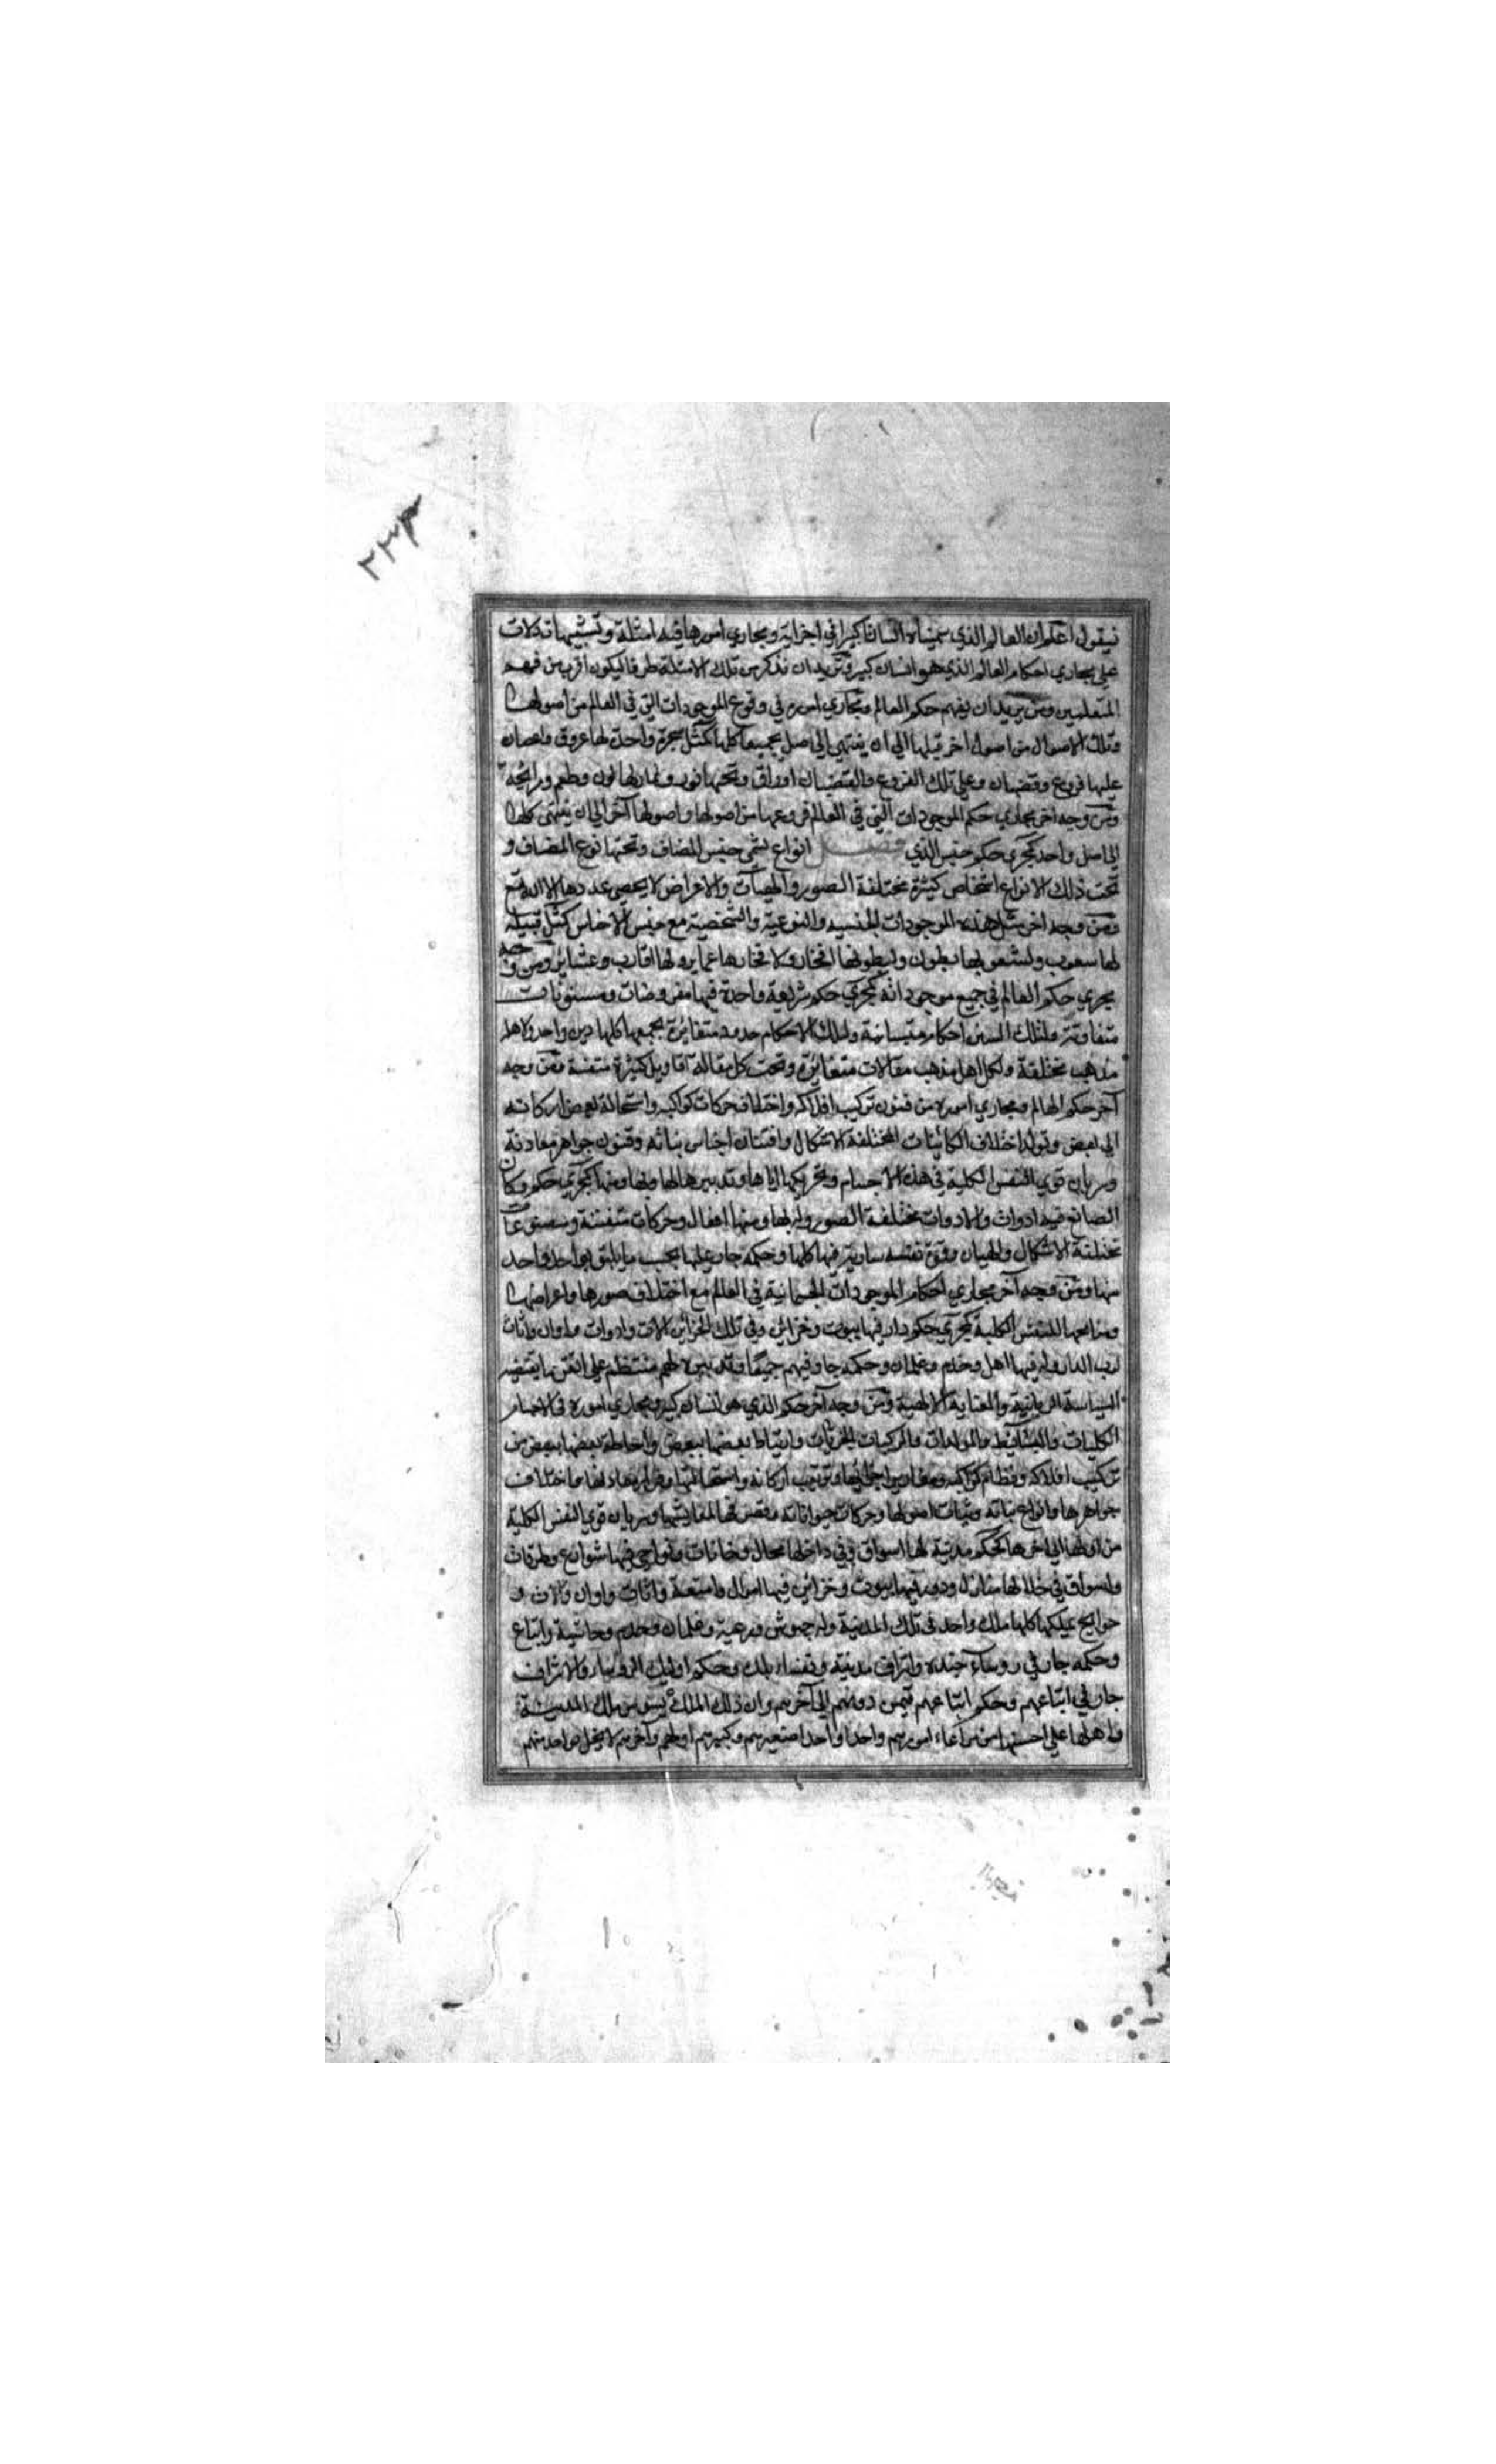 ٢٢٣
فنقول اعلم ان العالم الذي سميناه انسانا كبيرا في اجزايه ومجاري امورها فيه امثلة وتشبيهات دلات
علي مجاري احكام العالم الذي هو انسان كبير ونريد ان نذكر من تلك الامثلة طرفا ليكون اقرب من فهم
المتعلمين ومن يريد ان يفهم حكم العالم ومجاري اموره في وقوع الموجودات التي في العالم من اصولها
وتلك الاصول من اصول اخر قبلها الي ان ينتهي الي اصل يجمعها كلها كمثل شجرة واحدة لها عروق واغصان
عليها فروع وقضبان وعلي تلك الفروع والقضبان اوراق وتحتها نور وثمار لها لون وطعم ورائحة
ومن وجه اخر مجاري حكم الموجودات التي في العالم فروعها من اصولها واصولها من اخر الي ان ينتهي كلها
الي اصل واحد كمجري حكم جنس الذي فصل انواع يسمي جنس المضاف وتحتها نوع المضاف و
تحت ذلك الانواع اشخاص كثيرة مختلفة الصور والهيئات والاعراض لا يحصي عددها الا الله تع
ومن وجه اخر مثل هذه الموجودات الجنسيه والنوعية والشخصية مع جنس الاجناس كمثل قبيلة
لها شعوب ولشعوبها بطون ولبطونها افخاذ ولافخاذها عماير ولها اقارب وعشاير ومن وجه
يجري حكم العالم في جميع موجوداته كمجري حكم شريعة واحدة فيها مفروضات ومسنونات
متفاوتة ولتلك السنن احكام متباينة ولتلك الاحكام حدود متغايرة يجمعها كلها دين واحد ولاهله
مذهب مختلفة ولكل اهل مذهب مقالات متغايرة وتحت كل مقالة اقاويل كثيرة متفننة ومن وجه
آخر حكم العالم ومجاري اموره من فنون تركيب افلاكه واختلاف حركات كواكبه واستحالة بعض اركانه
الي بعض وتولد اختلاف الكائنات المختلفة الاشكال وافتنان اجناس نباته وفنون جواهر معادنه
وسريان قوي النفس الكلية في هذه الاجسام وتحريكها اياها وتدبيرها لها وبها ومنها كمجري حكم دكان
الصانع فيه ادوات والادوات مختلفة الصور وله بها ومنها افعال وحركات متفننة ومصنوعات
مختلفة الاشكال والهيات وقوة نفسه سارية فيها كلها وحكمه جار عليها بحسب ما يليق بواحد واحد
منها ومن وجه آخر مجاري احكام الموجودات الجسمانية في العالم مع اختلاف صورها واعراضها
ومنافعها للنفس الكلية كمجري حكم دار فيها بيوت وخزائن وفي تلك الخزائن الات وادوات واوان واثاث
لرب الدار وله فيها اهل وخدم وغلمان وحكمه جار فيهم جميعا وتدبيره لهم منتظم علي اتقن ما يقتضيه
السياسة الربانية والعناية الالهية ومن وجه آخر حكم الذي هو انسان كبير ومجاري اموره في الاجسام
الكليات والبسائط والمولدات والمركبات الجزئيات وارتباط بعضها ببعض واحاطة بعضها ببعض من
تركيب افلاكه ونظام كواكبه ومقادير اجرامها وترتيب اركانه واستحالتها وقرار معادنها واختلاف
جواهرها وانواع نباته وثبات اصولها وحركات حيواناته وتصرفها لمعايشها وسريان قوي النفس الكلية
من اولها الي اخرها كحكم مدينة لها اسواق وفي داخلها محال وخانات ونواحي فيها شوارع وطرقات
واسواق في خلالها منازل ودور فيها بيوت وخزائن فيها اموال وامتعة واثاث واوان والات و
حوايج يملكها كلها ملك واحد في تلك المدينة وله جيوش ورعية وغلمان وخدم وحاشية واتباع
وحكمه جار في روساء جنده واشراف مدينته وتنساء بلده وحكم اوليك الروساء والاشراف
جار في اتباعهم وحكم اتباعهم فيمن دونهم الي آخرهم وان ذلك الملك يسوس تلك المدينة
واهلها علي احسنها من مراعاة امورهم واحدا واحدا صغيرهم وكبيرهم اولهم وآخرهم لا يخل بواحد منهم